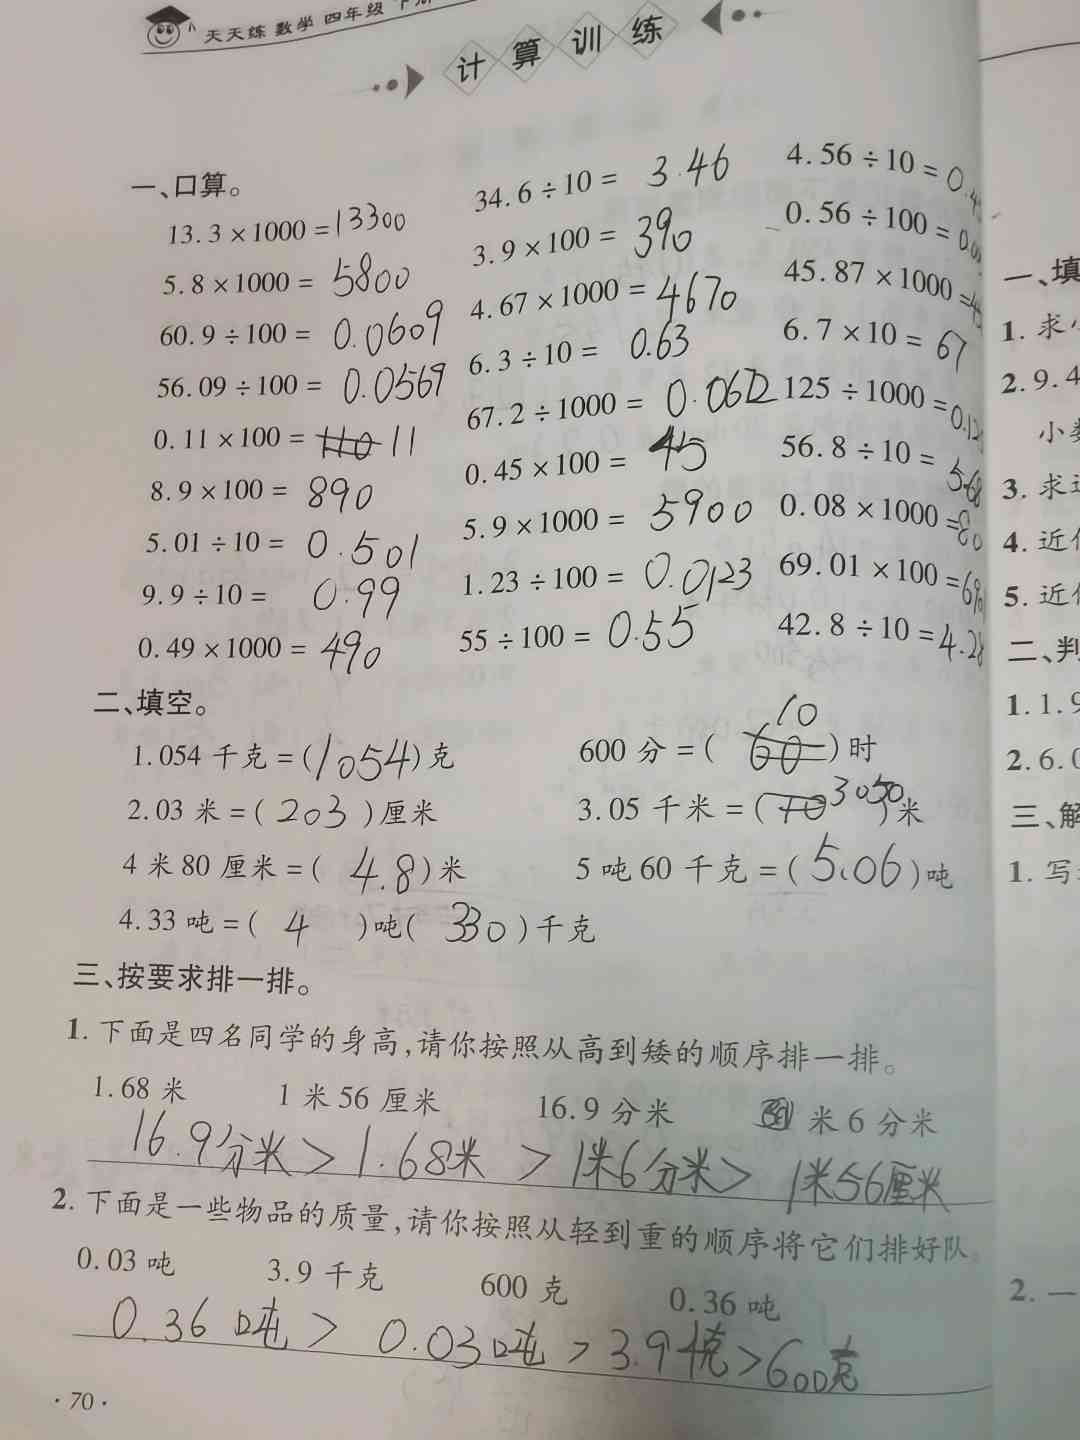 天天练 数学 四年级 下册
计算训练
一、口算。
13.3×1000=13300 34.6÷10= 3.46 4.56÷10=0.4
5.8×1000= 5800 3.9×100= 390 0.56÷100=0.0
60.9÷100= 0.0609 4.67×1000=4670 45.87×1000=45
56.09÷100= 0.0569 6.3÷10= 0.63 6.7×10= 67
0.11×100= 11 67.2÷1000= 0.0672 125÷1000=0.12
8.9×100= 890 0.45×100= 45 56.8÷10= 5.68
5.01÷10= 0.501 5.9×1000= 5900 0.08×1000=80
9.9÷10= 0.99 1.23÷100= 0.0123 69.01×100=690
0.49×1000= 490 55÷100= 0.55 42.8÷10=4.28
二、填空。
1.054 千克=(1054)克 600 分=( 60 10 )时
2.03 米=( 203 )厘米 3.05 千米=( 3050 )米
4 米 80 厘米=( 4.8 )米 5 吨 60 千克=( 5.06 )吨
4.33 吨=( 4 )吨( 330 )千克
三、按要求排一排。
1. 下面是四名同学的身高,请你按照从高到矮的顺序排一排。
1.68 米 1 米 56 厘米 16.9 分米 米 6 分米
16.9分米 > 1.68米 > 1米6分米 > 1米56厘米
2. 下面是一些物品的质量,请你按照从轻到重的顺序将它们排好队。
0.03 吨 3.9 千克 600 克 0.36 吨
0.36 吨 > 0.03吨 > 3.9千克 > 600克
· 70 ·
一、填
1. 求小
2. 9.4
小数
3. 求
4. 近似
5. 近似
二、判
1. 1.9
2. 6.0
三、解
1. 写
2. 一